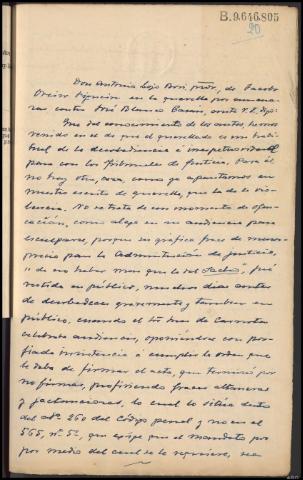 B.9.646.805
20
Don Antonio Lojo Bori, pror., de Jacobo
Oreiro Piñeiro en la querella por amena-
zas contra José Blanco Casais, ante V.S. digo:
Que del conocimiento de los autos hemos
venido en el de que el querellado es un habi-
tual de la desobediencia e irrespetuosidad
para con los Tribunales de Justicia. Para él
no hay otra cosa, como ya apuntamos en
nuestro escrito de querella, que la de la vio-
lencia. No se trata de un momento de ofus-
cación, como alega en su audiencia para
exculparse, porque su gráfica frase de menos-
precio para la Administración de Justicia,
"de no haber mas que la del Sacho", fué
vertida en público, muchos dias antes
de desobedecer gravemente y tambien en
público, cuando el Sr Juez de Carnota
celebraba audiencia, oponiéndose con por-
fiada insistencia a cumplir la orden que
le daba de firmar el acta, que terminó por
no firmar, profiriendo frases altaneras
y jactanciosas, lo cual lo sitúa dentro
del Nº 260 del Código penal y no en el
565, nº. 5º, que exige que el mandato por
por medio del cual se le requiriera, sea